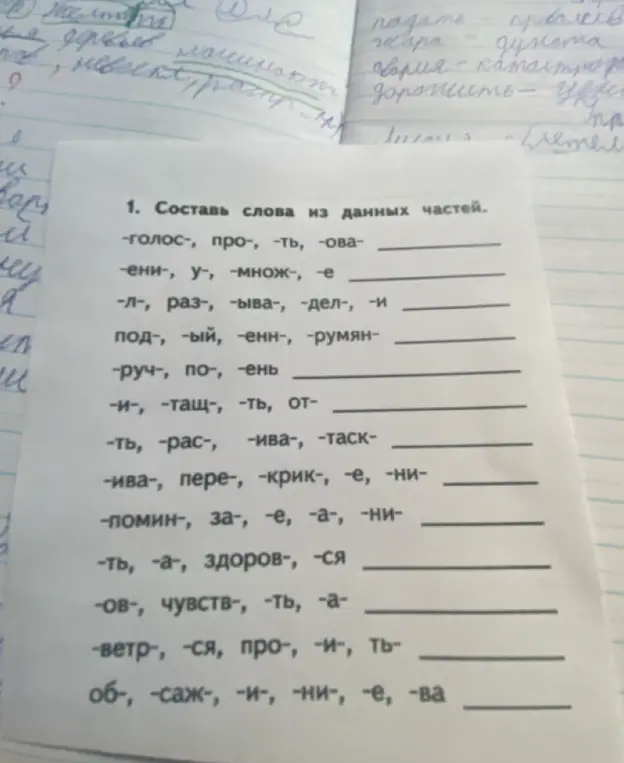 падать –
жара – духота
дорожить –
деревьев
1. Составь слова из данных частей.
-голос-, про-, -ть, -ова-
-ени-, у-, -множ-, -е
-л-, раз-, -ыва-, -дел-, -и
под-, -ый, -енн-, -румян-
-руч-, по-, -ень
-и-, -тащ-, -ть, от-
-ть, -рас-, -ива-, -таск-
-ива-, пере-, -крик-, -е, -ни-
-помин-, за-, -е, -а-, -ни-
-ть, -а-, здоров-, -ся
-ов-, чувств-, -ть, -а-
-ветр-, -ся, про-, -и-, ть-
об-, -саж-, -и-, -ни-, -е, -ва